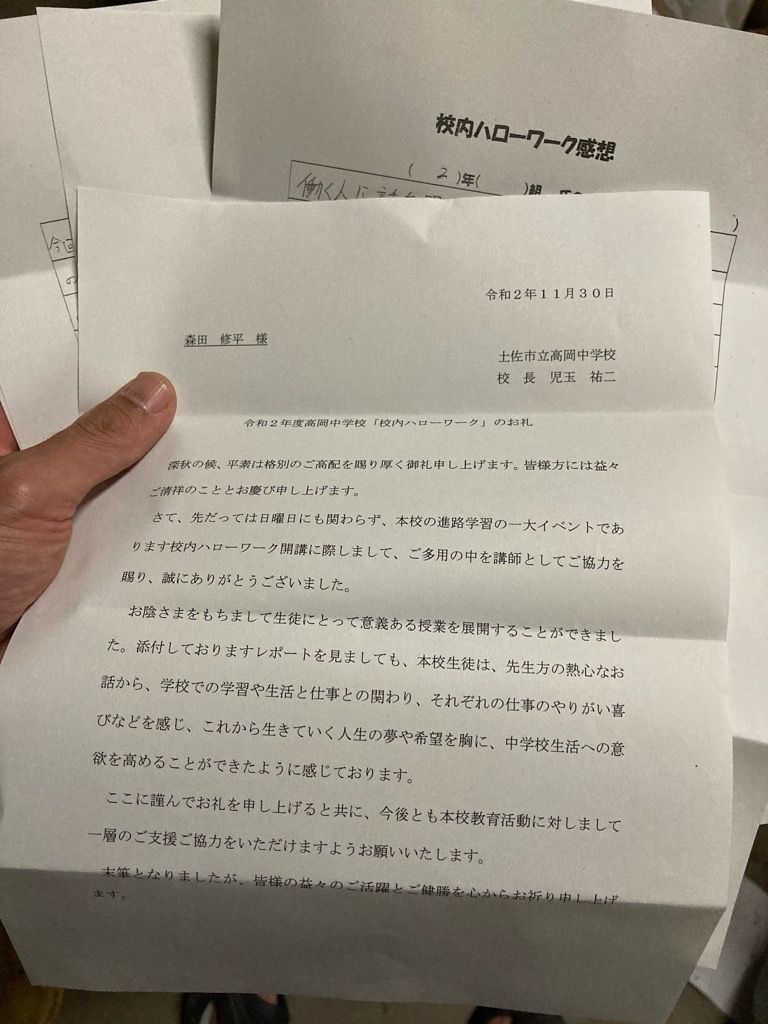 校内ハローワーク感想
( 2 )年( )組
働く人に
今回
の
令和2年11月30日
森田 修平 様
土佐市立高岡中学校
校 長 児玉 祐二
令和2年度高岡中学校「校内ハローワーク」のお礼
深秋の候、平素は格別のご高配を賜り厚く御礼申し上げます。皆様方には益々
ご清祥のこととお慶び申し上げます。
さて、先だっては日曜日にも関わらず、本校の進路学習の一大イベントであ
ります校内ハローワーク開講に際しまして、ご多用の中を講師としてご協力を
賜り、誠にありがとうございました。
お陰さまをもちまして生徒にとって意義ある授業を展開することができまし
た。添付しておりますレポートを見ましても、本校生徒は、先生方の熱心なお
話から、学校での学習や生活と仕事との関わり、それぞれの仕事のやりがい喜
びなどを感じ、これから生きていく人生の夢や希望を胸に、中学校生活への意
欲を高めることができたように感じております。
ここに謹んでお礼を申し上げると共に、今後とも本校教育活動に対しまして
一層のご支援ご協力をいただけますようお願いいたします。
末筆となりましたが、皆様の益々のご活躍とご健勝を心からお祈り申し上げ
ます。